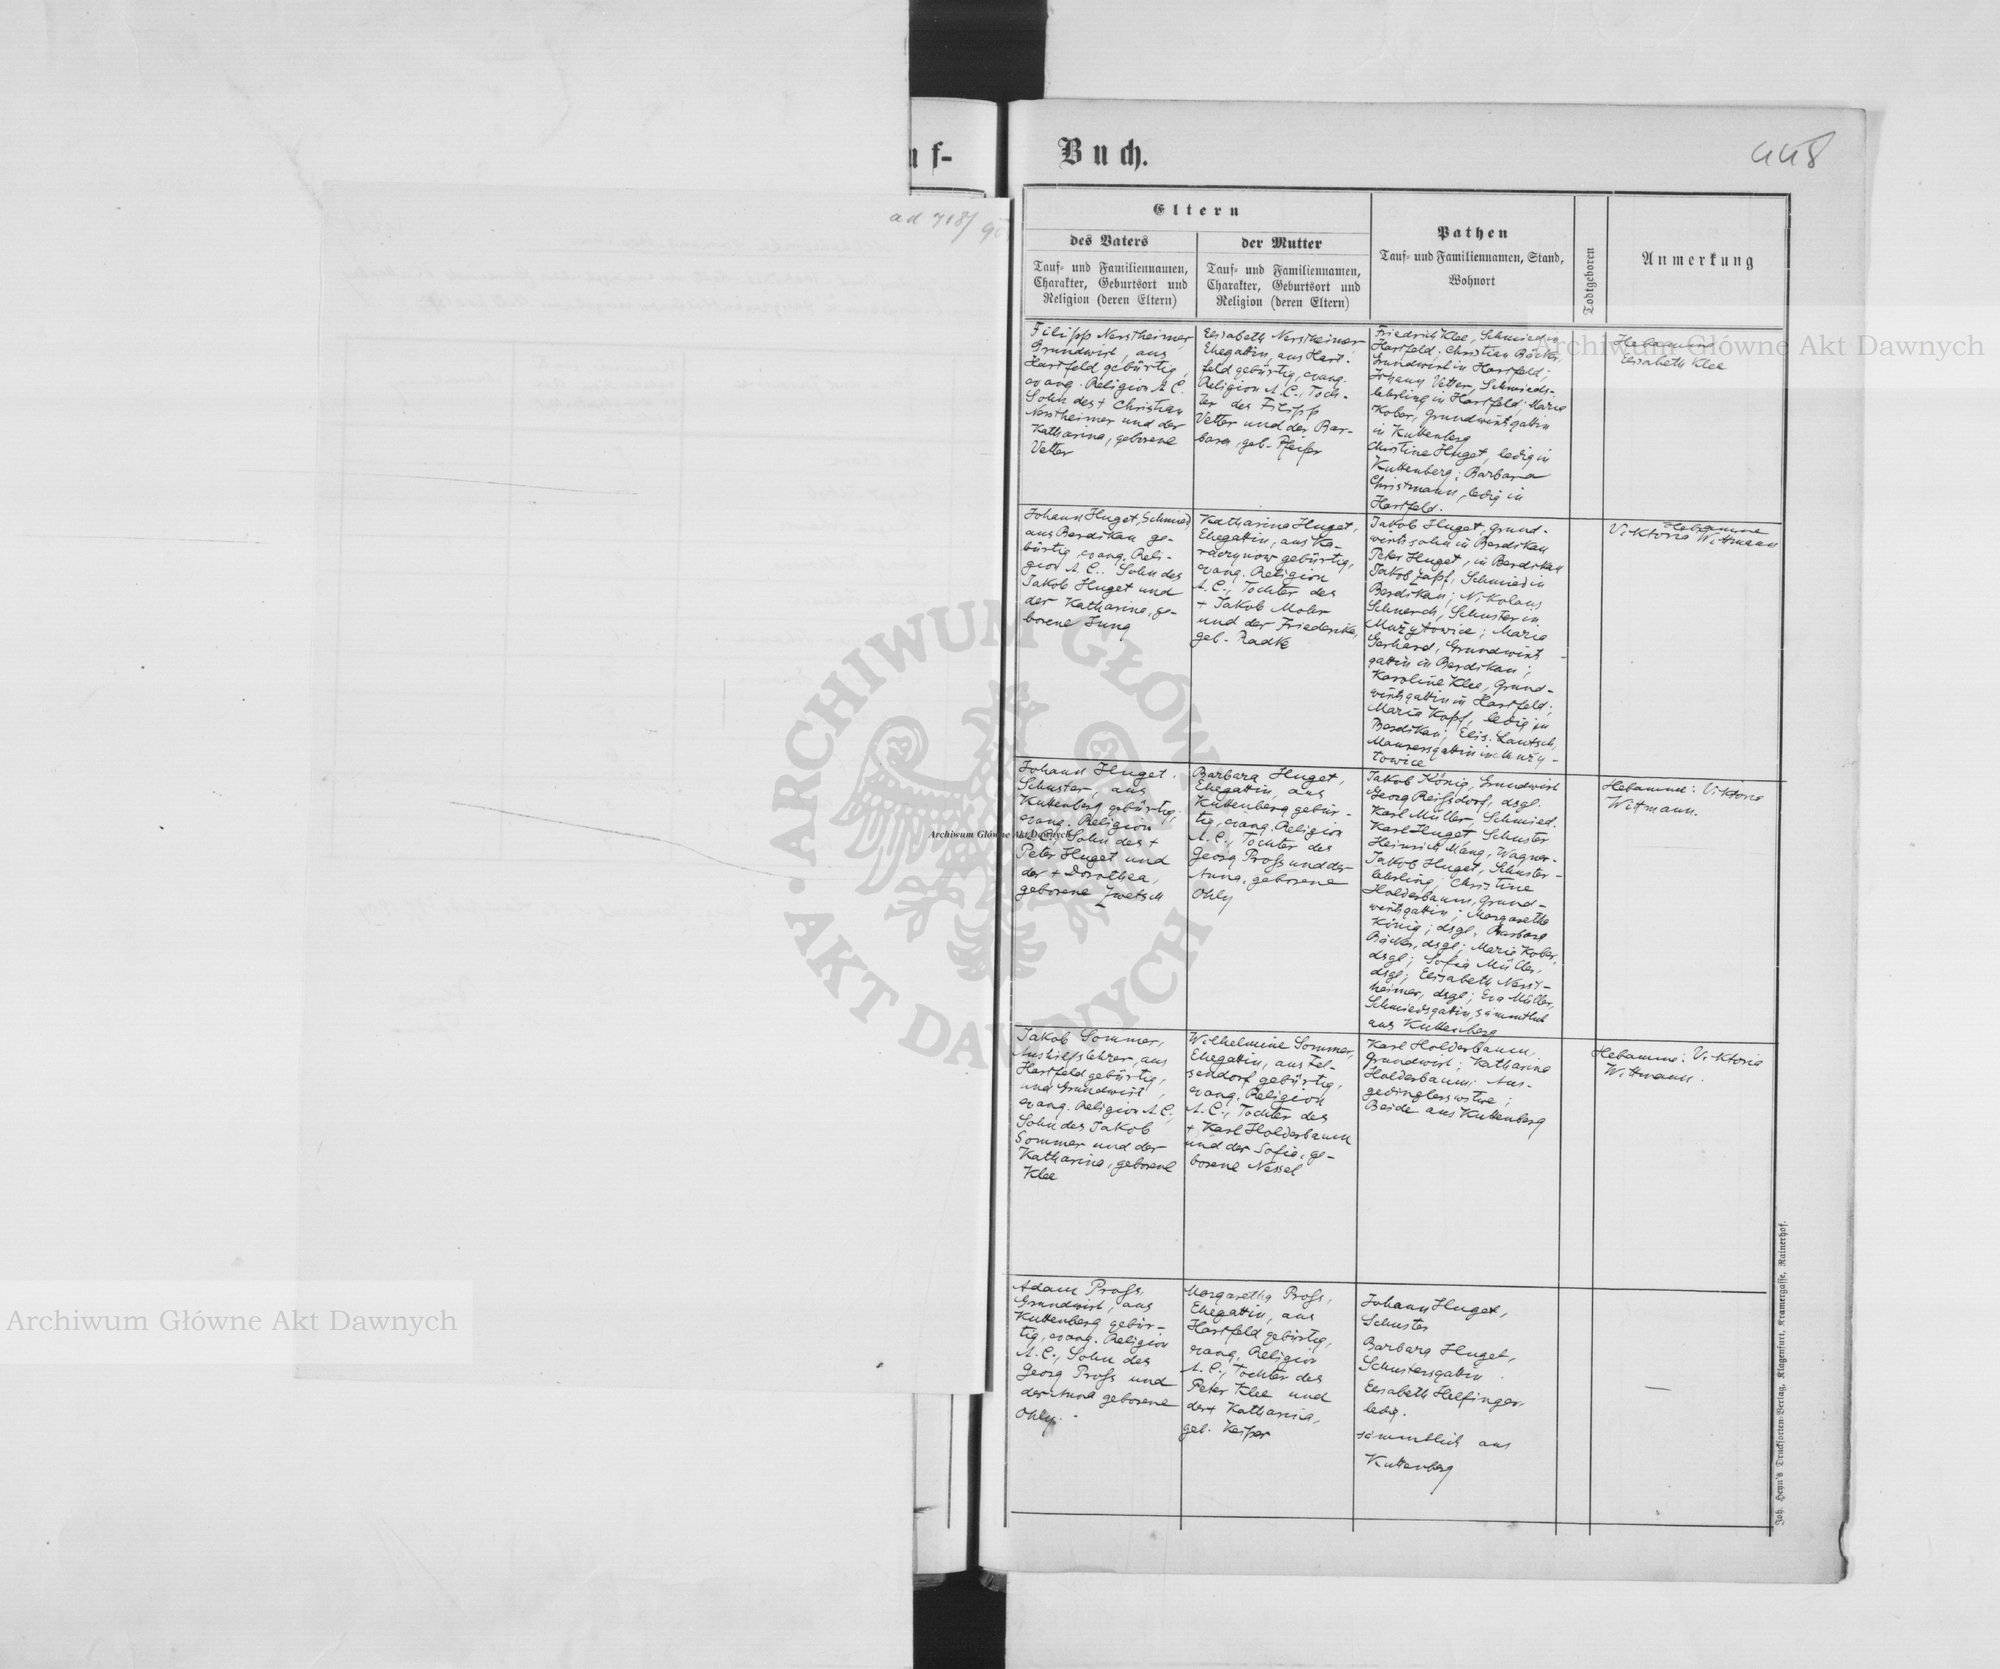 uf-
Buch.
448
ad 718/
Eltern
des Vaters
Tauf- und Familiennamen,
Charakter, Geburtsort und
Religion (deren Eltern)
der Mutter
Tauf- und Familiennamen,
Charakter, Geburtsort und
Religion (deren Eltern)
Pathen
Tauf- und Familiennamen, Stand,
Wohnort
Todtgeboren
Anmerkung
Filipp Nerstheimer
Grundwirt, aus
Hartfeld gebürtig,
evang. Religion A.C.
Sohn des + Christian
Nerstheimer und der
Katharina, geborene
Vetter
Elisabeth Nerstheimer
Ehegattin, aus Hart-
feld gebürtig, evang.
Religion A.C., Toch-
ter des Filipp
Vetter und der Bar-
bara, geb. Pfeifer
Friedrich Klee, Schmied in
Hartfeld; Christian Bäcker,
Grundwirt in Hartfeld;
Johann Vetter, Schmieds-
lehrling in Hartfeld; Maria
Kober, Grundwirtsgattin
in Kuttenberg
Christine Huget, ledig in
Kuttenberg; Barbara
Christmann, ledig in
Hartfeld.
Hebamme
Elisabeth Klee
Johann Huget, Schmied
aus Berdikau ge-
bürtig, evang. Reli-
gion A.C.. Sohn des
Jakob Huget und
der Katharina, ge-
borene Jung
Katharina Huget,
Ehegattin, aus Ka-
raczynow gebürtig,
evang. Religion
A.C., Tochter des
+ Jakob Mohr
und der Friederike,
geb. Radke
Jakob Huget, Grund-
wirtssohn in Berdikau
Peter Huget, in Berdikau
Jakob Zapf, Schmied in
Berdikau; Nikolaus
Schnerch, Schuster in
Mużyłowice; Maria
Gerhard, Grundwirts-
gattin in Berdikau;
Karoline Klee, Grund-
wirtsgattin in Hartfeld;
Maria Kopf, ledig in
Berdikau; Elis. Lautsch,
Maurersgattin in Muży-
łowice
Hebamme
Viktoria Wittmann
Johann Huget.
Schuster, aus
Kuttenberg gebürtig,
evang. Religion
A.C., Sohn des +
Peter Huget und
der + Dorothea,
geborene Zwetsch
Barbara Huget,
Ehegattin, aus
Kuttenberg gebür-
tig, evang. Religion
A.C., Tochter des
Georg Profs und der
Anna, geborene
Ohly
Jakob König, Grundwirt
Georg Reifsdorf, dsgl.
Karl Müller, Schmied.
Karl Huget Schuster
Heinrich Mang, Wagner-
Jakob Huget, Schuster-
lehrling; Christine
Holderbaum, Grund-
wirtsgattin; Margarethe
König; dsgl. Barbara
Bäcker, dsgl; Maria Kober,
dsgl; Sofia Müller,
dsgl; Elisabeth Nerst-
heimer, dsgl; Eva Müller,
Schmiedsgattin, sämmtlich
aus Kuttenberg
Hebamme: Viktoria
Wittmann.
Jakob Sommer,
Aushilfslehrer, aus
Hartfeld gebürtig,
und Grundwirt,
evang. Religion A.C.,
Sohn des Jakob
Sommer und der
Katharina, geborene
Klee
Wilhelmine Sommer,
Ehegattin, aus Fel-
sendorf gebürtig,
evang. Religion
A.C., Tochter des
+ Karl Holderbaum
und der Sofia, ge-
borene Nessel
Karl Holderbaum,
Grundwirt; Katharina
Holderbaum, Aus-
gedinglerswitwe;
Beide aus Kuttenberg
Hebamme: Viktoria
Wittmann.
Adam Profs,
Grundwirt, aus
Kuttenberg gebür-
tig, evang. Religion
A.C., Sohn des
Georg Profs und
der Anna geborene
Ohly.
Margaretha Profs,
Ehegattin, aus
Hartfeld gebürtig,
evang. Religion
A.C., Tochter des
Peter Klee und
der + Katharina,
geb. Keiper
Johann Huget,
Schuster
Barbara Huget,
Schustersgattin
Elisabeth Helfinger,
ledig.
sämmtlich aus
Kuttenberg
—
Joh. Heyn's Drucksorten-Verlag, Klagenfurt, Kramergasse, Rainerhof.
Archiwum Główne Akt Dawnych
Archiwum Główne Akt Dawnych
Archiwum Główne Akt Dawnych
ARCHIWUM GŁÓWNE
AKT DAWNYCH